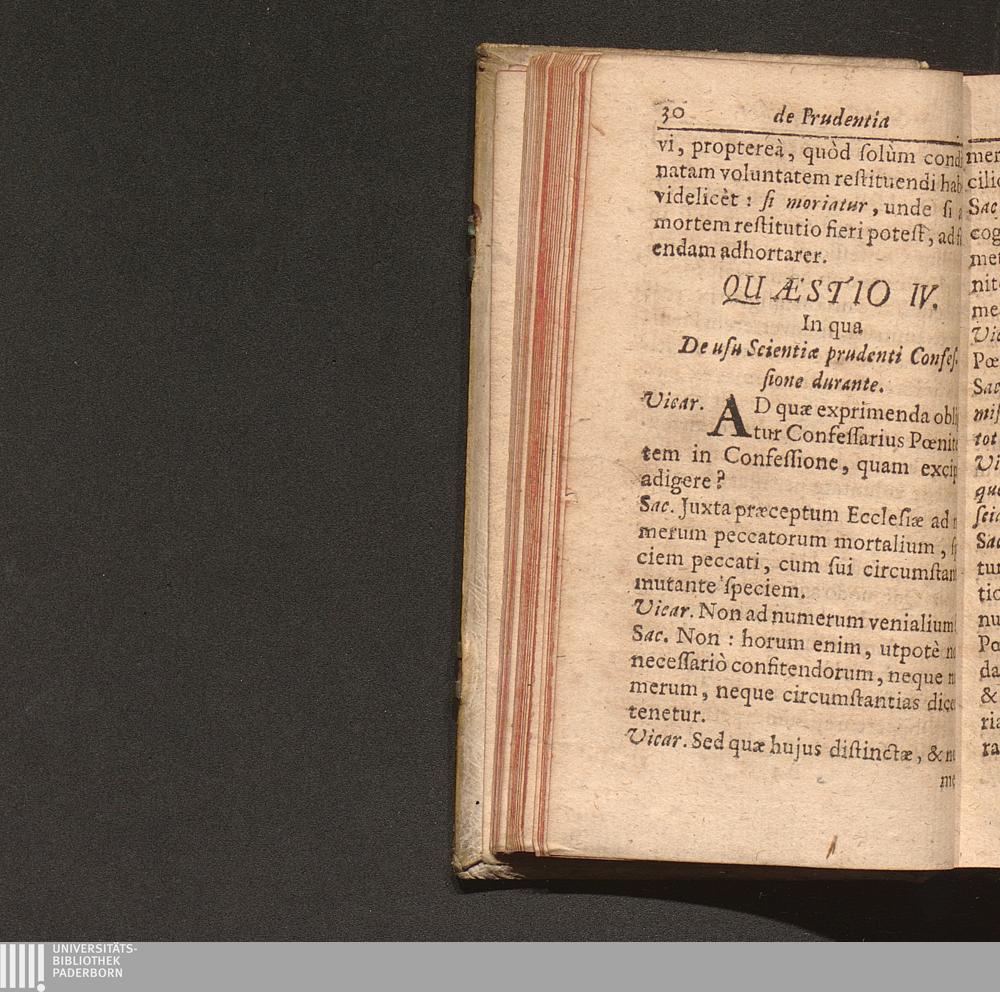 30 de Prudentia
vi, proptereà, quòd ſolùm cond
natam voluntatem reſtituendi hab
videlicèt : ſi moriatur, unde ſi
mortem reſtitutio fieri poteſt, ad
endam adhortarer.
QUÆSTIO IV.
In qua
De uſu Scientiæ prudenti Confeſ-
ſione durante.
Vicar. AD quæ exprimenda obli
tur Confeſſarius Pœnite
tem in Confeſſione, quam excip
adigere?
Sac. Juxta præceptum Eccleſiæ ad
merum peccatorum mortalium,
ciem peccati, cum ſui circumſtan
mutante ſpeciem.
Vicar. Non ad numerum venialium
Sac. Non : horum enim, utpotè
neceſſariò confitendorum, neque
merum, neque circumſtantias dice
tenetur.
Vicar. Sed quæ hujus diſtinctæ, &
me
mer
cili
Sac
cog
met
nit
me
Vic
Pœ
Sac
miſ
tot
Vi
que
ſci
Sac
tur
tio
nu
Pœ
da
&
ria
ra
UNIVERSITÄTS-
BIBLIOTHEK
PADERBORN